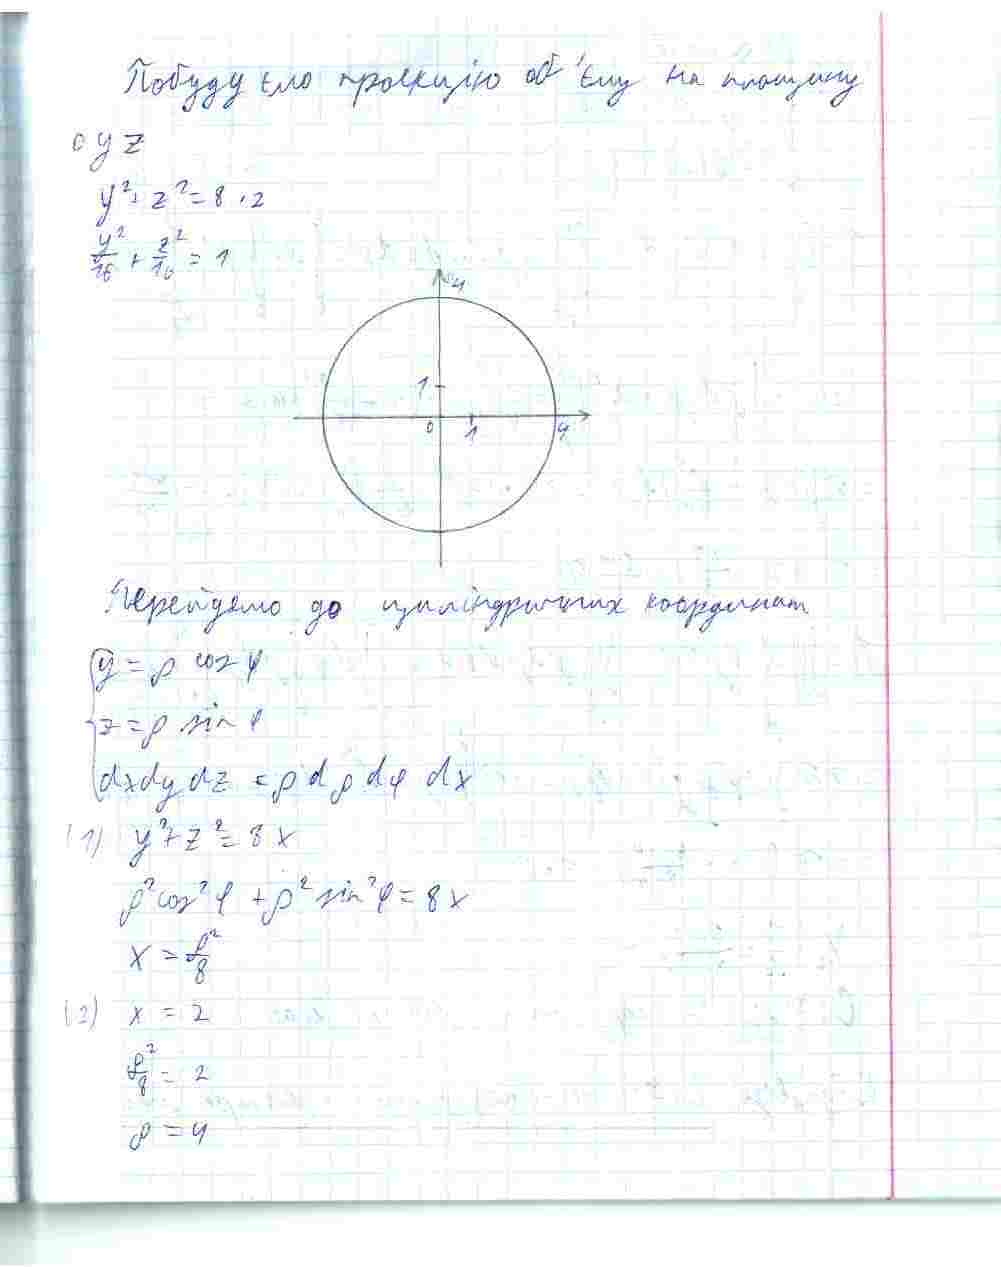 Побудуємо проекцію об'єму на площину
OyZ
y² + z² = 8 · 2
y²/16 + z²/16 = 1
4
1
0
1
4
Перейдемо до циліндричних координат
{ y = ρ cos φ
z = ρ sin φ
dxdydz = ρ dρ dφ dx
(1) y² + z² = 8x
ρ² cos² φ + ρ² sin² φ = 8x
x = ρ²/8
(2) x = 2
ρ²/8 = 2
ρ = 4